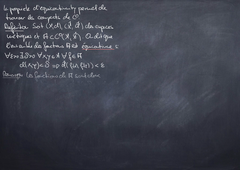 La propriété d'équicontinuité permet de
trouver les compacts de C⁰
Définition Soit (X,d), (X',d') des espaces
métriques et A ⊂ C⁰(X,X'). On dit que
l'ensemble de fonctions A est équicontinue si
∀ε>0 ∃δ>0 ∀x,y∈X ∀f∈A
d(x,y)<δ ⇒ d'(f(x),f(y))<ε
Remarque Les fonctions de A sont donc